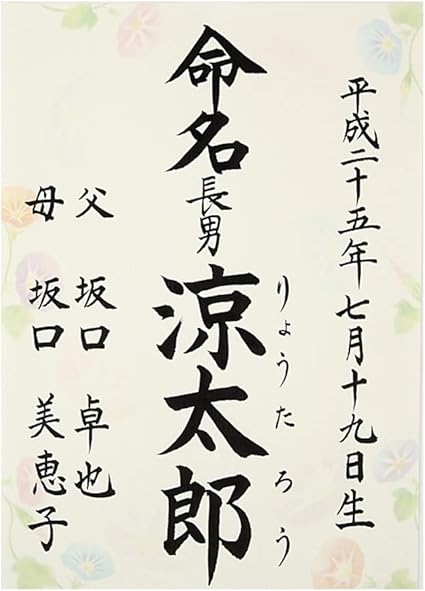 平成二十五年七月十九日生
命名
長男
涼太郎
りょうたろう
父 坂口 卓也
母 坂口 美恵子